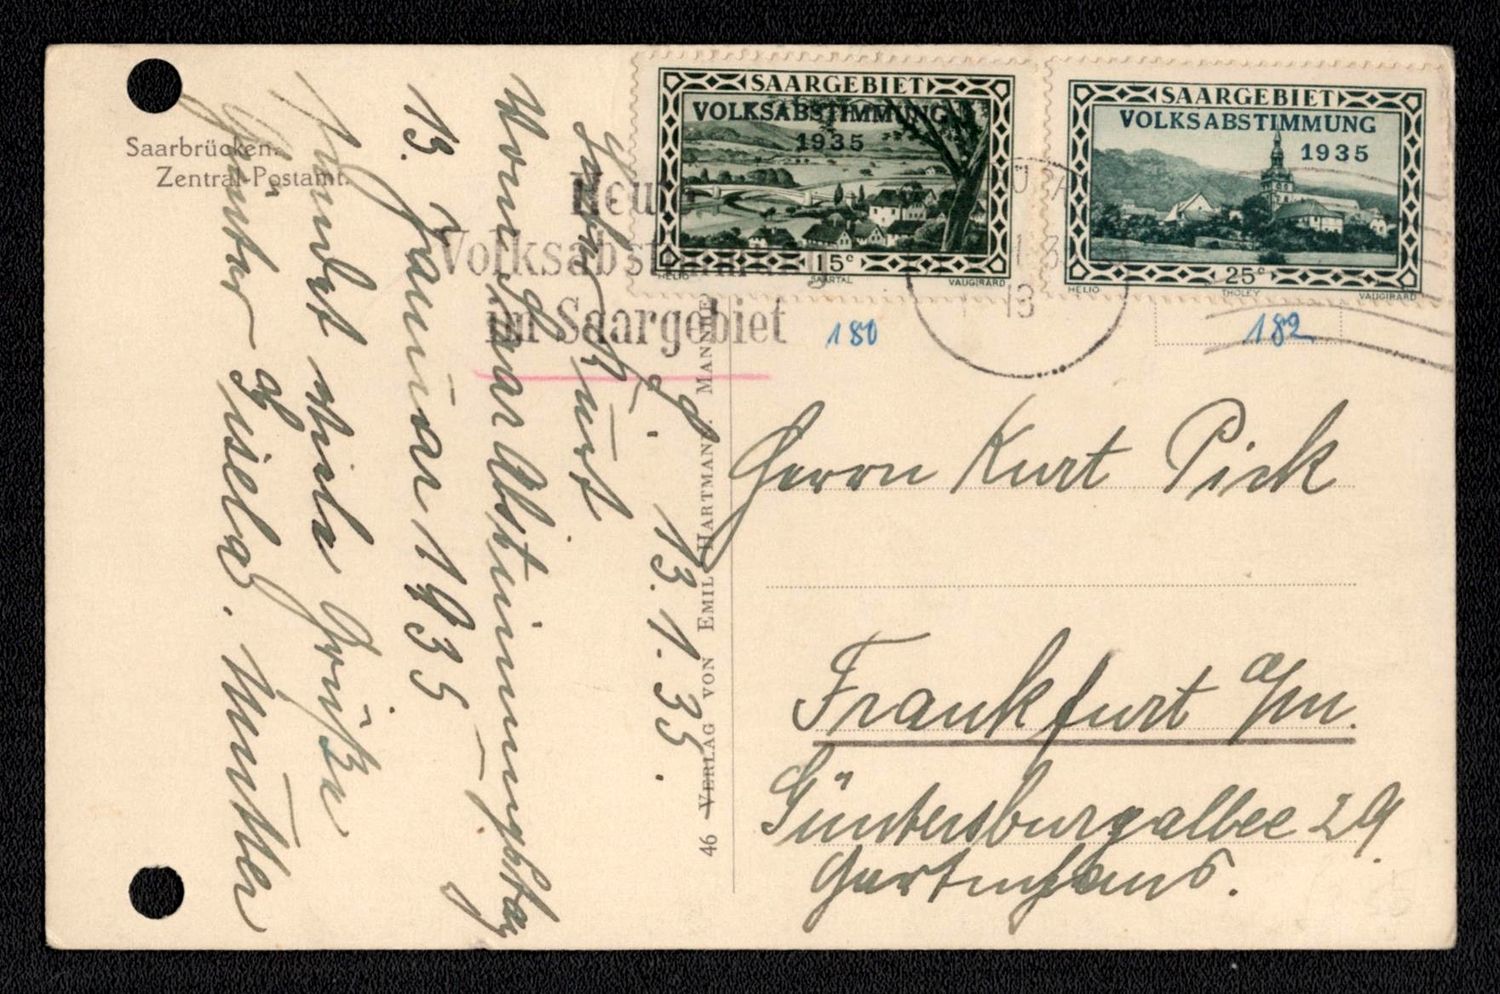 Saarbrücken.
Zentral-Postamt.
SAARGEBIET
VOLKSABSTIMMUNG
1935
15c
HELIO SAARTAL VAUGIRARD
SAARGEBIET
VOLKSABSTIMMUNG
1935
25c
HELIO THOLEY VAUGIRARD
Heute
Volksabstimmung
im Saargebiet
13
180
182
13.1.35.
Lieber Kurt
Vom Saar Abstimmungstag
13. Januar 1935
sendet viele Grüße
Günter Gisela. Mutter
46 VERLAG VON EMIL HARTMANN, MANNHEIM
Herrn Kurt Pick
Frankfurt a/m.
Güntersburgallee 29
Gartenhaus.